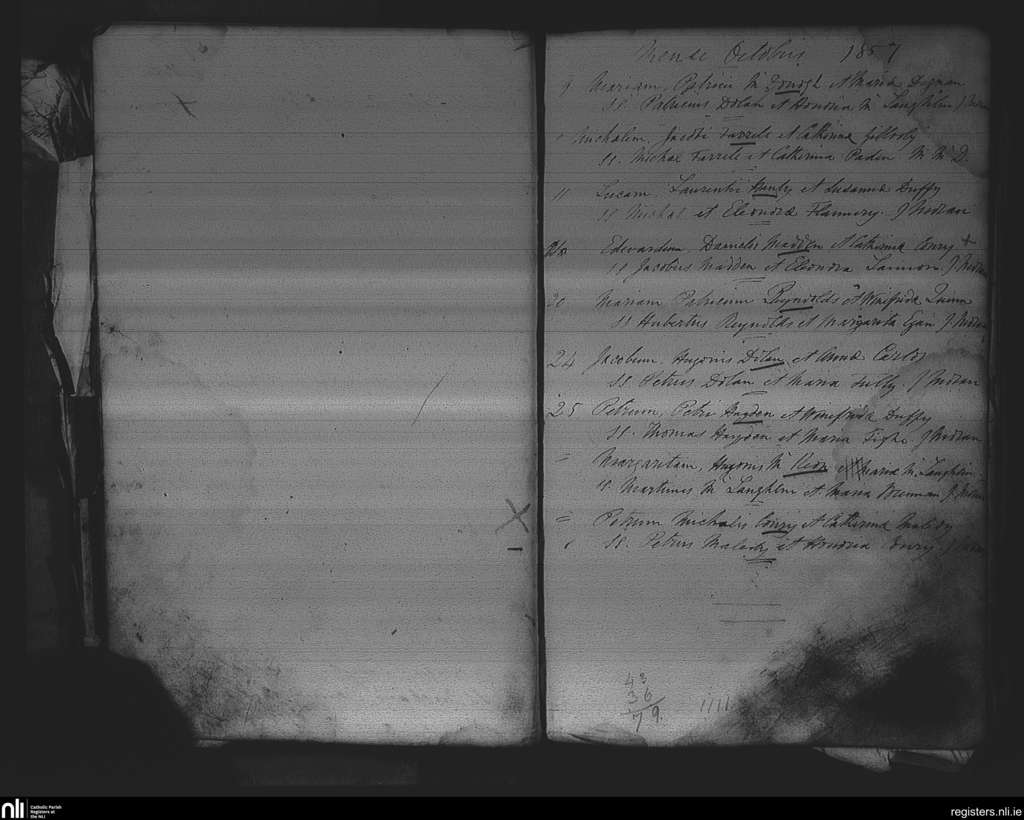 Mense Octobris 1857
9 Mariam, Patricii Mc Donogh et Maria Dignan
SS. Patricius Dolan et Honoria Mc Laughlin J
Michalem, Jacobi Farrele et Catherina
SS. Michael Farrele et Catherina Paden. M. M. D.
11 Lucam Laurentii Hanly et Susanna Duffy
SS Michal et Eleonora Flannery. J
Edwardum, Danielis Madden et Catherina Conry +
SS Jacobus Madden et Eleonora Lannon. J
20 Mariam Patricium Reynolds et Winifrida Quinn
SS Hubertus Reynolds et Margarita Egan J
24 Jacobum, Hugonis Dolan et Anna Carlos
SS. Petrus Dolan et Maria Tully. J
25 Petrum, Petri Hayden et Winifrida Duffy
SS. Thomas Hayden et Maria J
= Margaritam, Hugonis Mc Keon et Maria Mc Laughlin
SS. Martinus Mc Laughlin et Maria Brennan J
= Petrum Michalis Conry et Catherina
SS. Petrus et Honoria Conry J
43
36
79.
nli Catholic Parish Registers at the NLI
registers.nli.ie